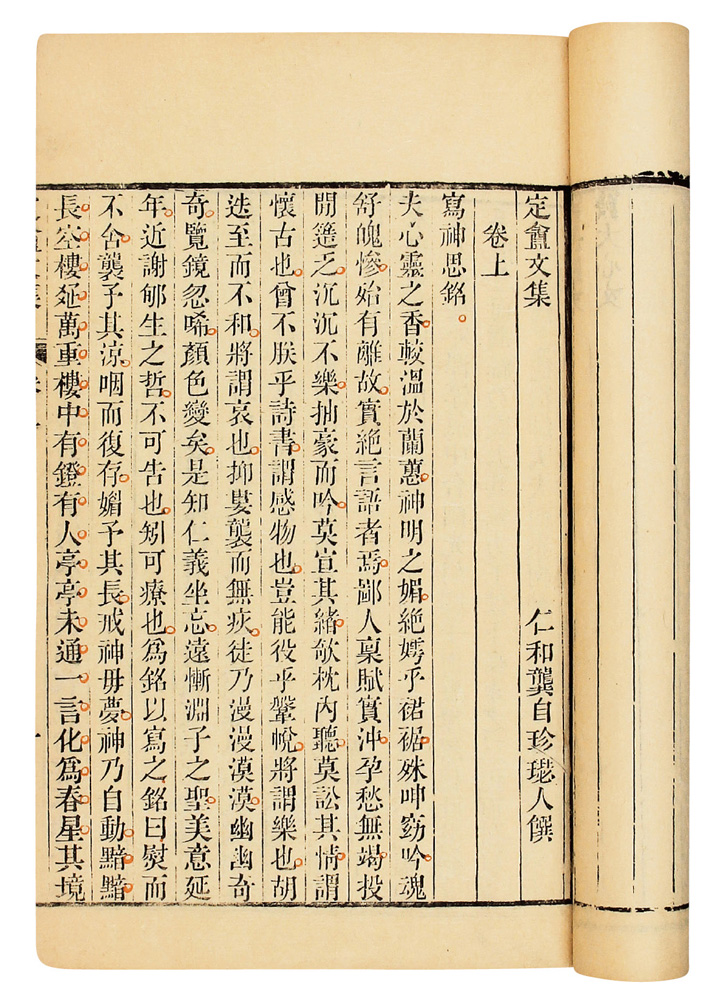 定盦文集　仁和龔自珍璱人饌
卷上
寫神思銘。
夫心靈之香較溫於蘭蕙神明之媚絕嫮乎裙裾殊呻窈吟魂
舒魄慘殆有離故實絕言語者焉鄙人稟賦實沖孕愁無竭投
閒簉乏沉沉不樂抽豪而吟莫宣其緒欹枕內聽莫訟其情謂
懷古也曾不朕乎詩書謂感物也豈能役乎鞶帨將謂樂也胡
迭至而不和將謂哀也抑屢襲而無疾徒乃漫漫漠漠幽幽奇
奇覽鏡忽唏顏色變矣是知仁義坐忘遠慚淵子之聖美意延
年近謝郇生之哲不可告也矧可療也為銘以寫之銘曰熨而
不舍襲予其涼咽而復存媚予其長戒神毋夢神乃自動黯黯
長空樓延萬重樓中有鐙有人亭亭未通一言化為春星其境